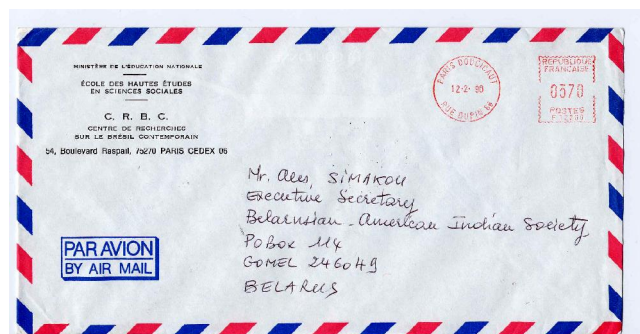 MINISTÈRE DE L'ÉDUCATION NATIONALE
ÉCOLE DES HAUTES ÉTUDES
EN SCIENCES SOCIALES
C. R. B. C.
CENTRE DE RECHERCHES
SUR LE BRÉSIL CONTEMPORAIN
54, Boulevard Raspail, 75270 PARIS CEDEX 06
PARIS BOUCICAUT
12-2-90
RUE DUPIN 6e
REPUBLIQUE
FRANCAISE
0370
POSTES
Mr. Ales, SIMAKOU
Executive Secretary
Belarusian-American Indian Society
PO Box 114
GOMEL 246049
BELARUS
PAR AVION
BY AIR MAIL